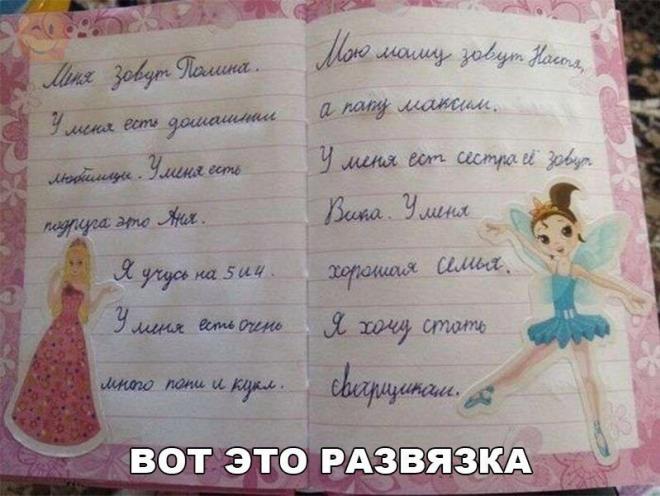 Меня зовут Полина.
У меня есть домашнии
любимицы. У меня есть
подруга это Аня.
Я учусь на 5 и 4.
У меня есть очень
много пони и кукл.
Мою маму зовут Настя,
а папу максим.
У меня ест сестра её зовут
Вика. У меня
хорошая семья.
Я хочу стать
сварщикам.
ВОТ ЭТО РАЗВЯЗКА